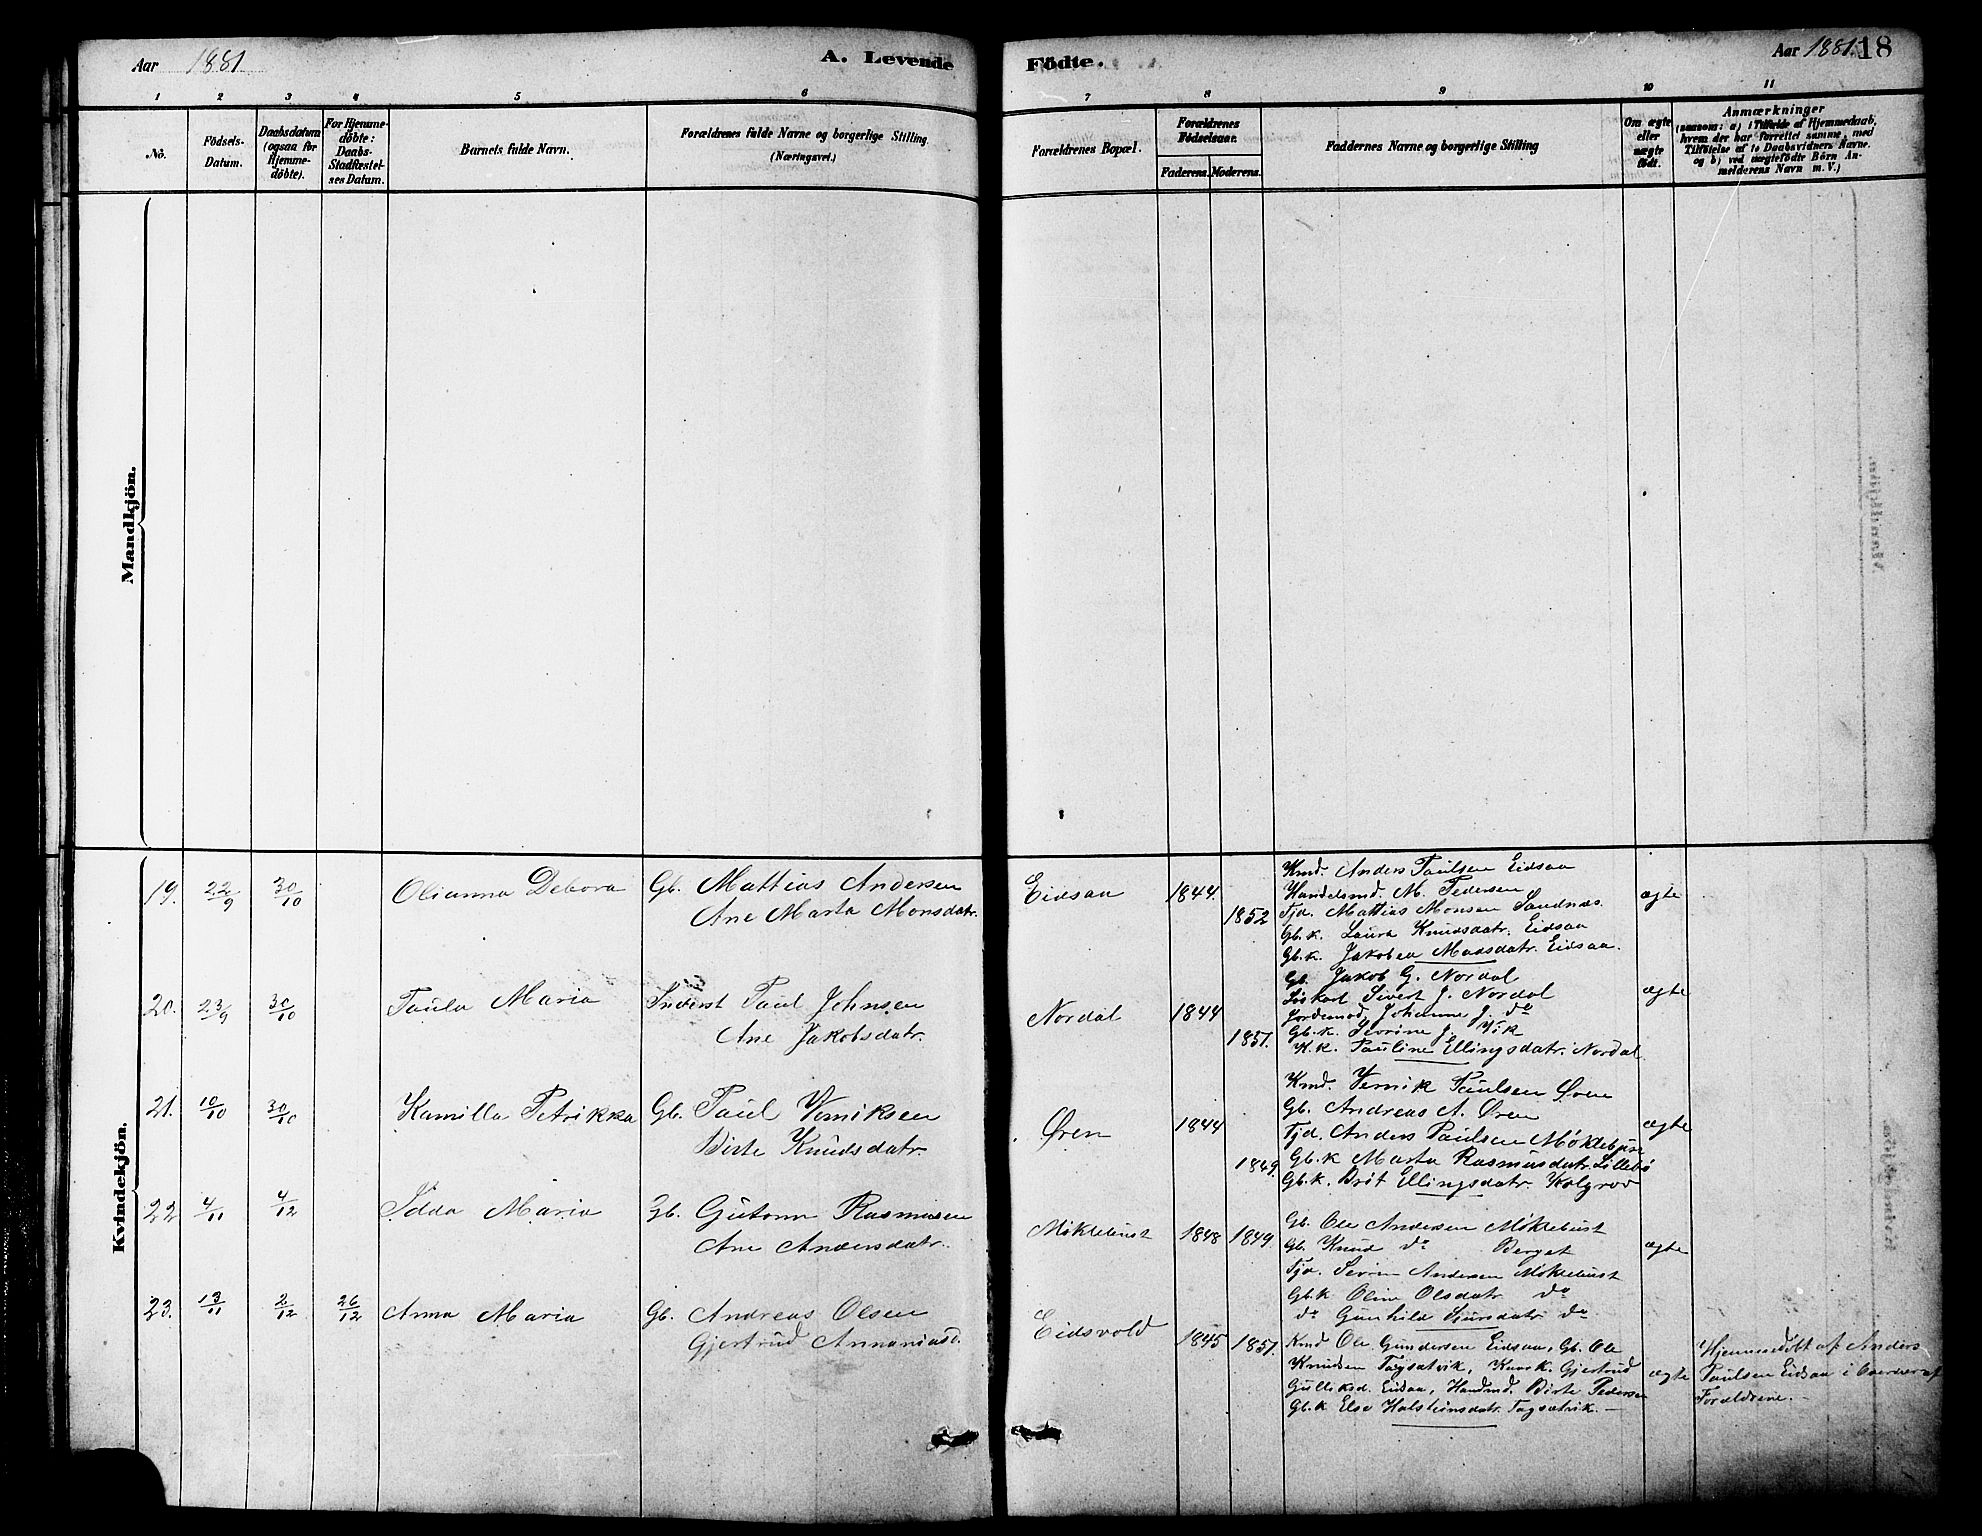 Aar 1881
A. Levende
Födte.
Aar 1881. 18
1 2 3 4 5 6 7 8 9 10 11
No.
Födsels-
Datum.
Daabsdatum
(ogsaa for
Hjemme-
döbte).
For Hjemme-
döbte:
Daabs-
Stadfæstel-
ses Datum.
Barnets fulde Navn.
Forældrenes fulde Navne og borgerlige Stilling
(Næringsvei.)
Forældrenes Bopæl.
Forældrenes
Födselsaar.
Faderens. Moderens.
Faddernes Navne og borgerlige Stilling
Om ægte
eller
uægte
födt.
Anmærkninger
(saasom: a) i Tilfælde af Hjemmedaab,
hvem der har forrettet samme, med
Tilföielse af to Daabsvidners Navne.
og b) ved uægtefödte Börn An-
melderens Navn m. V.)
Mandkjön.
Kvindekjön.
19. 22/9 30/10 Olianna Debora Gb. Mattias Andersen
Ane Marta Monsdatr.
Eidsaa 1844. 1852
Kmd. Anders Paulsen Eidsaa
Handelsmd. M. Pedersen
Tjd. Mattias Monsen Sandnæs.
Gb.k. Laura Knudsdatr. Eidsaa
Gb.k. Jakobea Madsdatr. Eidsaa.
ægte
20. 23/9 30/10 Paula Maria Inderst Paul Johnsen
Ane Jakobsdatr.
Nordal 1844 1851.
Gb. Jakob G. Nordal
Løskarl Sivert J. Nordal
Jordemod. Johanne J. do
Gb.k. Sevrine J. Vik
K.k. Pauline Ellingsdatr. Nordal
ægte
21. 10/10 30/10 Kamilla Petrikka Gb. Paul Verniksen
Birte Knudsdatr.
Øren 1844 1849.
Kmd. Vernik Paulsen Øren
Gb. Andreas A. Øren
Tjd. Anders Paulsen Møklebust
Gb.k Marta Rasmusdatr. Lillebø
Gb.k. Brit Ellingsdatr. Kolgrov
ægte
22 4/11 4/12 Idda Maria Gb. Gutorm Rasmusen
Ane Andersdatr.
Møklebust 1848 1849.
Gb. Ole Andersen Møklebust
Gb. Knud do Berget
Tjd. Sevrin Andersen Møklebust
Gb.k Oline Olsdatr do
do Gunhild Sjursdatr do
ægte
23. 13/11 2/12 26/12 Anna Maria Gb. Andreas Olsen
Gjertrud Annaniasd.
Eidsvold 1845 1851.
Kmd Ole Gundersen Eidsaa, Gb. Ole
Knudsen Tagsatvik, Kaark. Gjertrud
Gulliksd. Eidsaa, Handmd. Birte Pedersen
Gb.k Else Halstensdatr. Tagsatvik. —
ægte
Hjemmedöbt af Anders
Paulsen Eidsaa i Overvær af
Forældrene. —